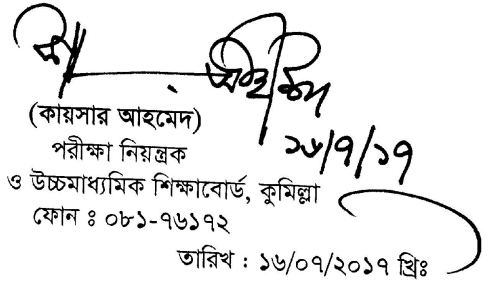 (কায়সার আহমেদ)
১৬/৭/১৭
পরীক্ষা নিয়ন্ত্রক
ও উচ্চমাধ্যমিক শিক্ষাবোর্ড, কুমিল্লা
ফোন ঃ ০৮১-৭৬১৭২
তারিখ : ১৬/০৭/২০১৭ খ্রিঃ